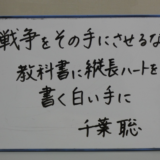 戦争をその手にさせるな
教科書に縦長ハートを
書く白い手に
千葉 聡